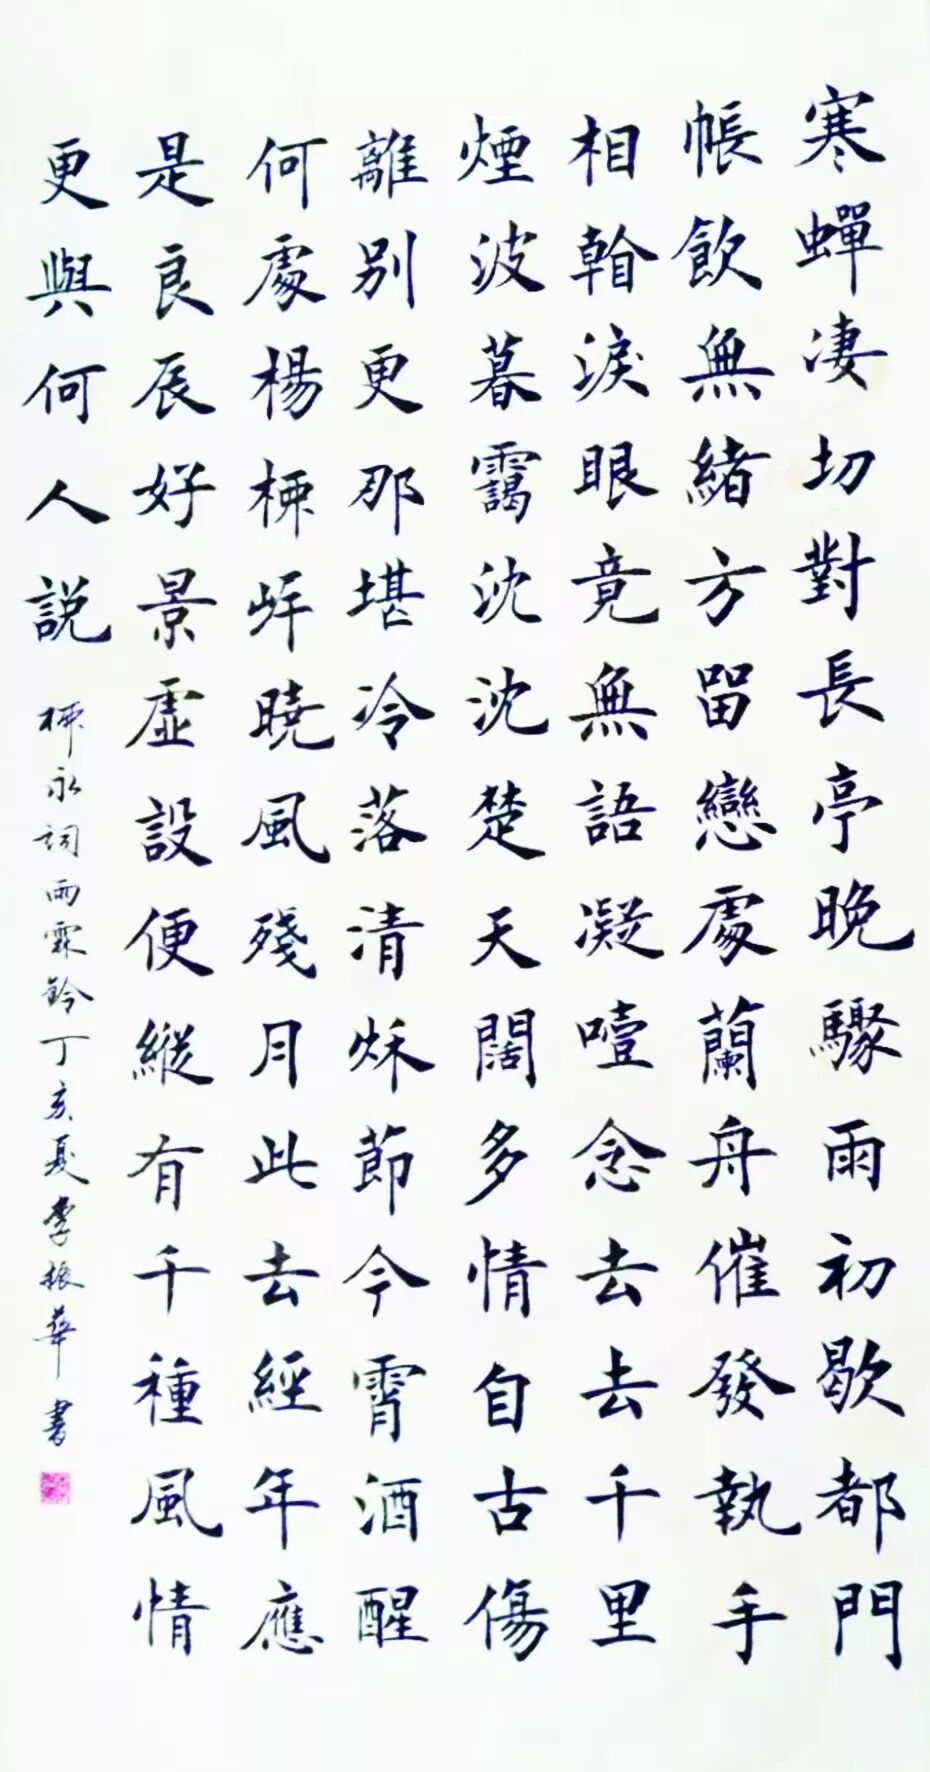 寒蟬凄切對長亭晚驟雨初歇都門
帳飲無緒方留戀處蘭舟催發執手
相看淚眼竟無語凝噎念去去千里
煙波暮靄沈沈楚天闊多情自古傷
離別更那堪冷落清秋節今霄酒醒
何處楊柳岸曉風殘月此去經年應
是良辰好景虛設便縱有千種風情
更與何人説
柳永詞雨霖鈴丁亥夏李振華書